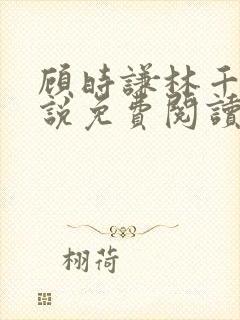 顾時謙林千
説免費閱讀
栩荷